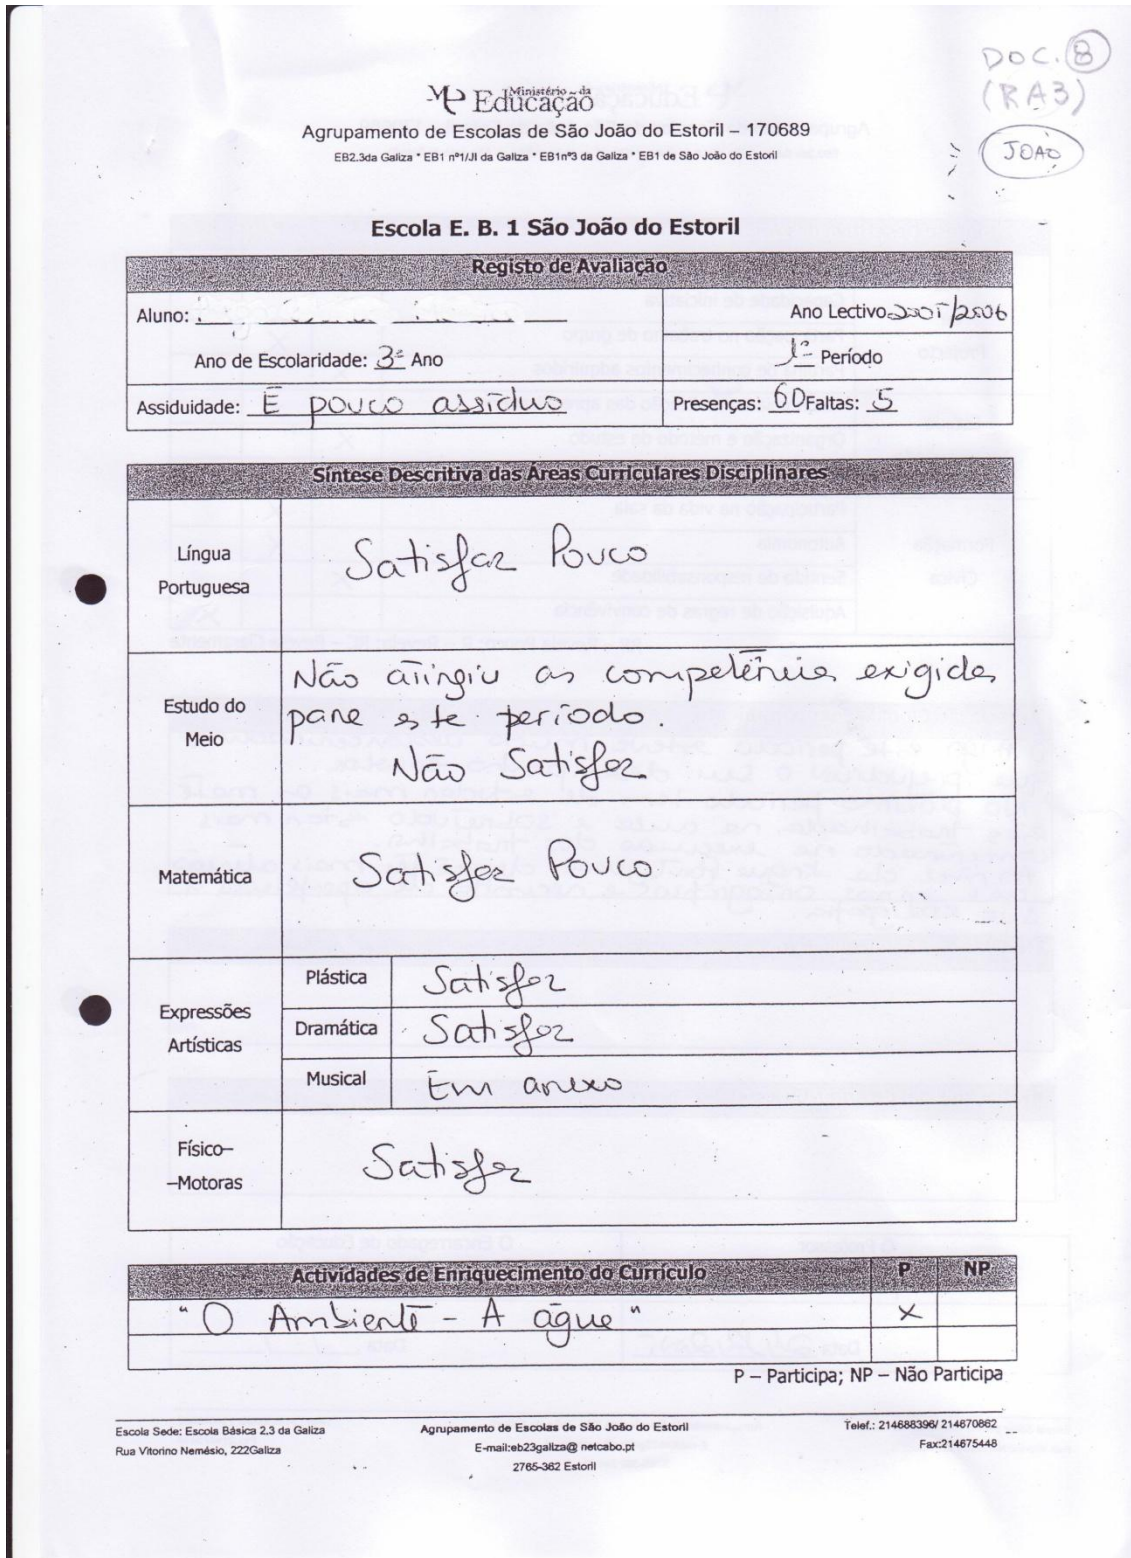 DOC. 8
(RA3)
JOÃO
Ministério da
Educação
Agrupamento de Escolas de São João do Estoril – 170689
EB2.3da Galiza * EB1 nº1/JI da Galiza * EB1nº3 da Galiza * EB1 de São João do Estoril
Escola E. B. 1 São João do Estoril
Registo de Avaliação
Aluno:
Ano Lectivo 2005/2006
Ano de Escolaridade: 3º Ano
1º Período
Assiduidade: É pouco assíduo
Presenças: 60 Faltas: 5
Síntese Descritiva das Áreas Curriculares Disciplinares
Língua
Portuguesa
Satisfaz Pouco
Estudo do
Meio
Não atingiu as competências exigidas
para este período.
Não Satisfaz
Matemática
Satisfaz Pouco
Expressões
Artísticas
Plástica
Satisfaz
Dramática
Satisfaz
Musical
Em anexo
Físico–
–Motoras
Satisfaz
Actividades de Enriquecimento do Currículo
P
NP
"O Ambiente - A água"
X
P – Participa; NP – Não Participa
Escola Sede: Escola Básica 2,3 da Galiza
Rua Vitorino Nemésio, 222Galiza
Agrupamento de Escolas de São João do Estoril
E-mail:eb23galiza@ netcabo.pt
2765-362 Estoril
Telef.: 214688396/ 214670862
Fax:214675448